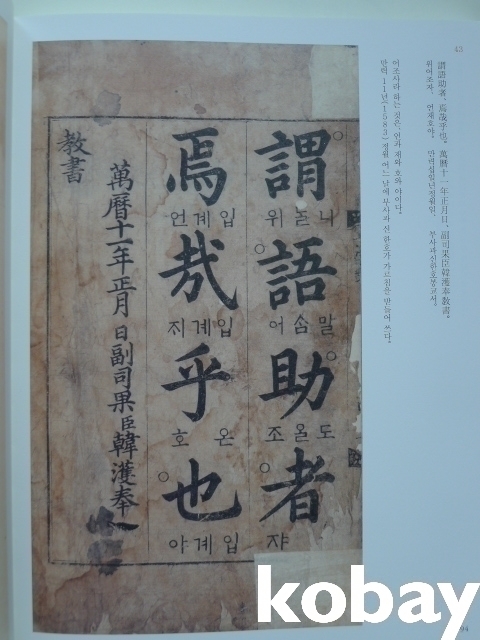 謂語助者, 焉哉乎也. 萬曆十一年正月日, 副司果臣韓濩奉敎書.
위어조자, 언재호야. 만력십일년정월일, 부사과신한호봉교서.
어조사라 하는 것은, 언과 재와 호와 야이다.
만력 11년(1583) 정월 어느 날에 부사과 신 한호가 가르침을 받들어 쓰다.
謂
語
말ᄉᆞᆷ 어
助
도올 조
者
쟈
焉
입계 언
哉
입계 ᄌᆡ
乎
온 호
也
입계 야
萬曆十一年正月 日副司果臣韓濩奉
敎書
kobay